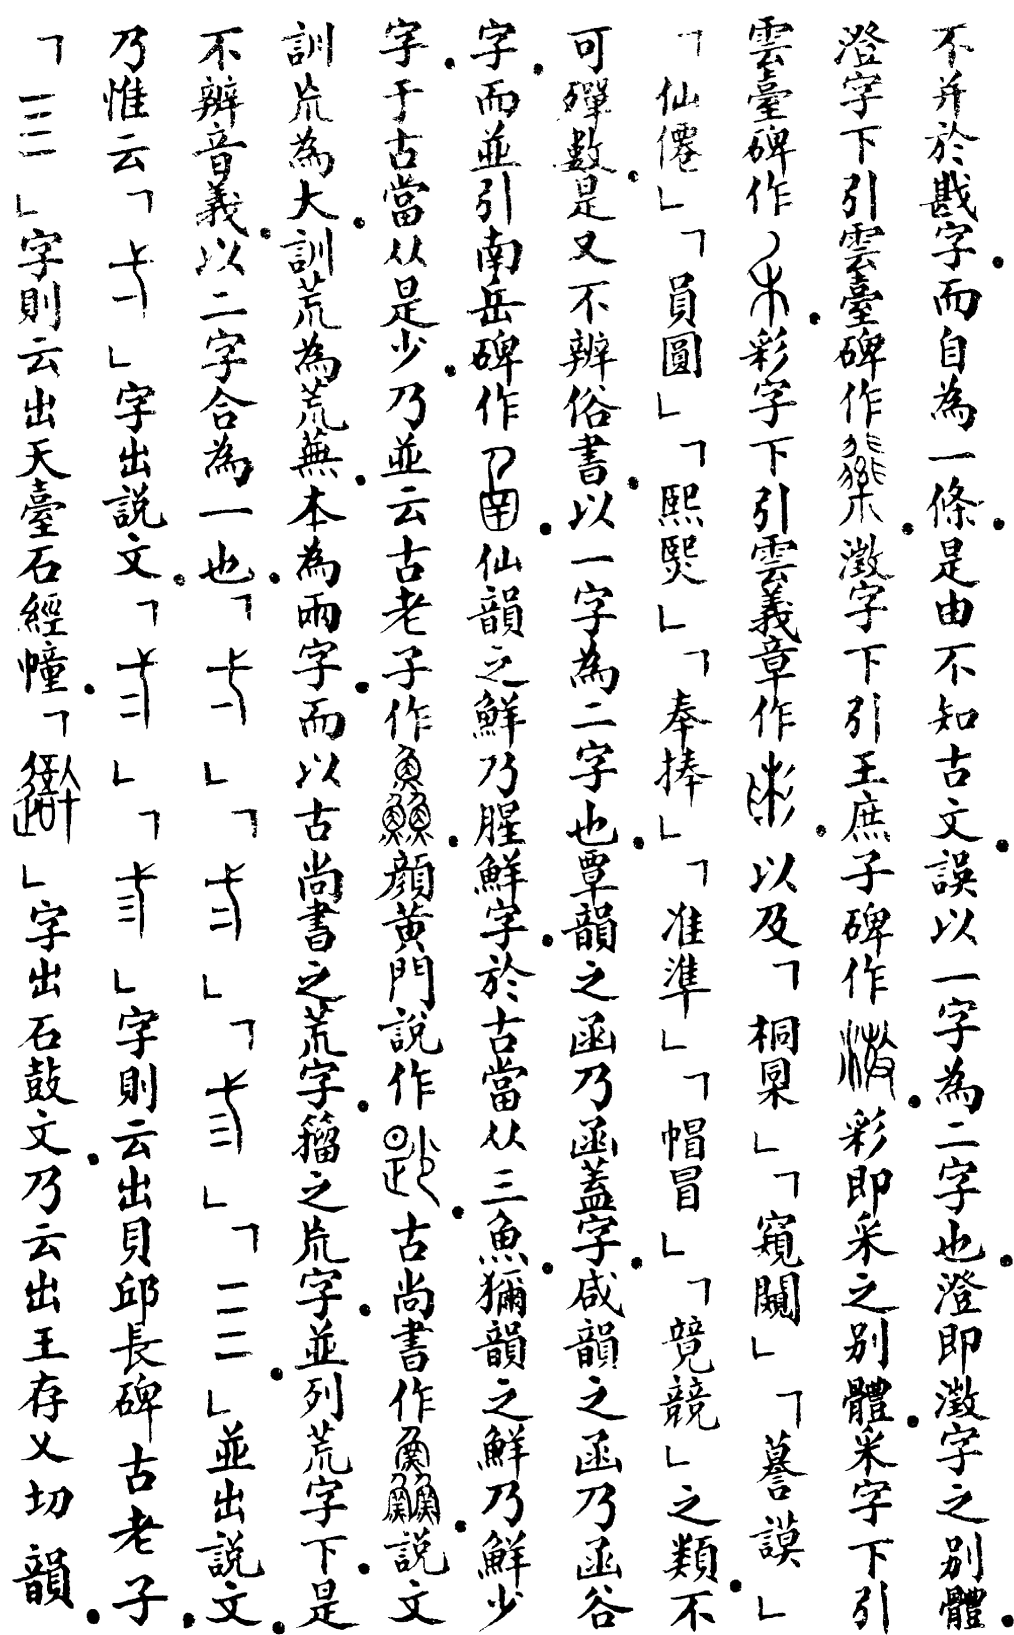 不并於戡字而自為一條是由不知古文誤以一字為二字也澄即澂字之別體
澄字下引雲臺碑作澂字下引王庶子碑作彩即采之別體采字下引
雲臺碑作彩字下引雲義章作以及「桐㮯」「窺闚」「謩謨」
「仙僊」「員圓」「熙煕」「奉捧」「准準」「帽冒」「競競」之類不
可殫數是又不辨俗書以一字為二字也覃韻之函乃函蓋字咸韻之函乃函谷
字而並引南岳碑作仙韻之鮮乃腥鮮字於古當从三魚獮韻之鮮乃鮮少
字于古當从是少乃並云古老子作顏黃門說作古尚書作說文
訓巟為大訓荒為荒蕪本為兩字而以古尚書之荒字籀之巟字並列荒字下是
不辨音義以二字合為一也「」「」「」「一二三」並出說文
乃惟云「」字出說文「」「」字則云出貝邱長碑古老子
「一二三」字則云出天臺石經幢「」字出石鼓文乃云出王存乂切韻